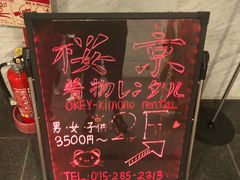 桜京
着物レンタル
OKEY-kimono rental
男・女・子供
3500円〜
2F
TEL.075-285-2313